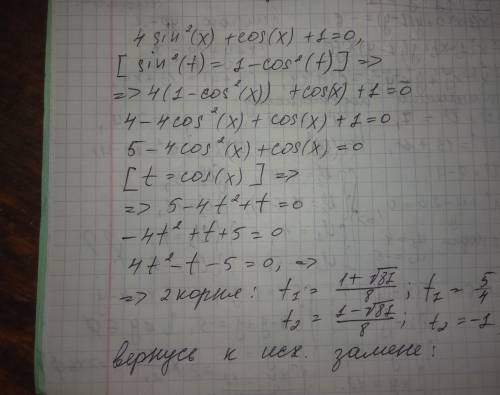 4 sin²(x) + cos(x) + 1 = 0,
[ sin²(t) = 1 - cos²(t) ] =>
=> 4(1 - cos²(x)) + cos(x) + 1 = 0
4 - 4cos²(x) + cos(x) + 1 = 0
5 - 4cos²(x) + cos(x) = 0
[ t = cos(x) ] =>
=> 5 - 4t² + t = 0
-4t² + t + 5 = 0
4t² - t - 5 = 0, =>
=> 2 корня: t₁ = (1 + √81)/8 ; t₁ = 5/4
t₂ = (1 - √81)/8 ; t₂ = -1
вернусь к исх. замене: